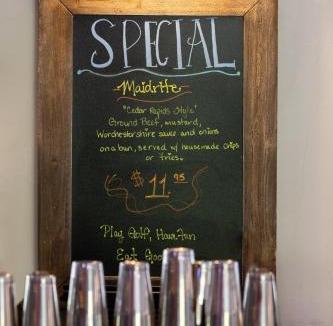 SPECIAL
Maidrite
"Cedar Rapids Style"
Ground Beef, mustard,
Worchestershire sauce and onions
on a bun, served w/ housemade chips
or fries.
$ 11.95
Play Golf, Have Fun
Eat